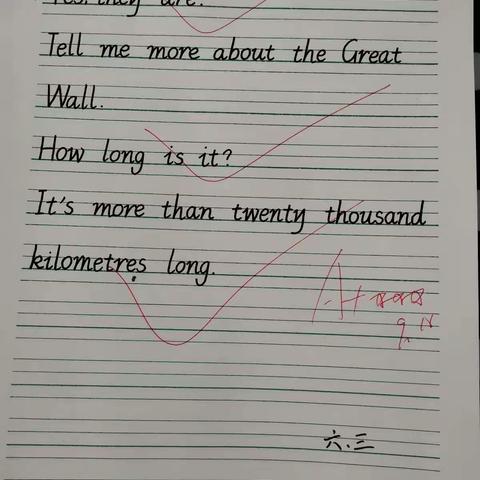 Yes, they are.
Tell me more about the Great
Wall.
How long is it?
It's more than twenty thousand
kilometres long.
A+
六.三